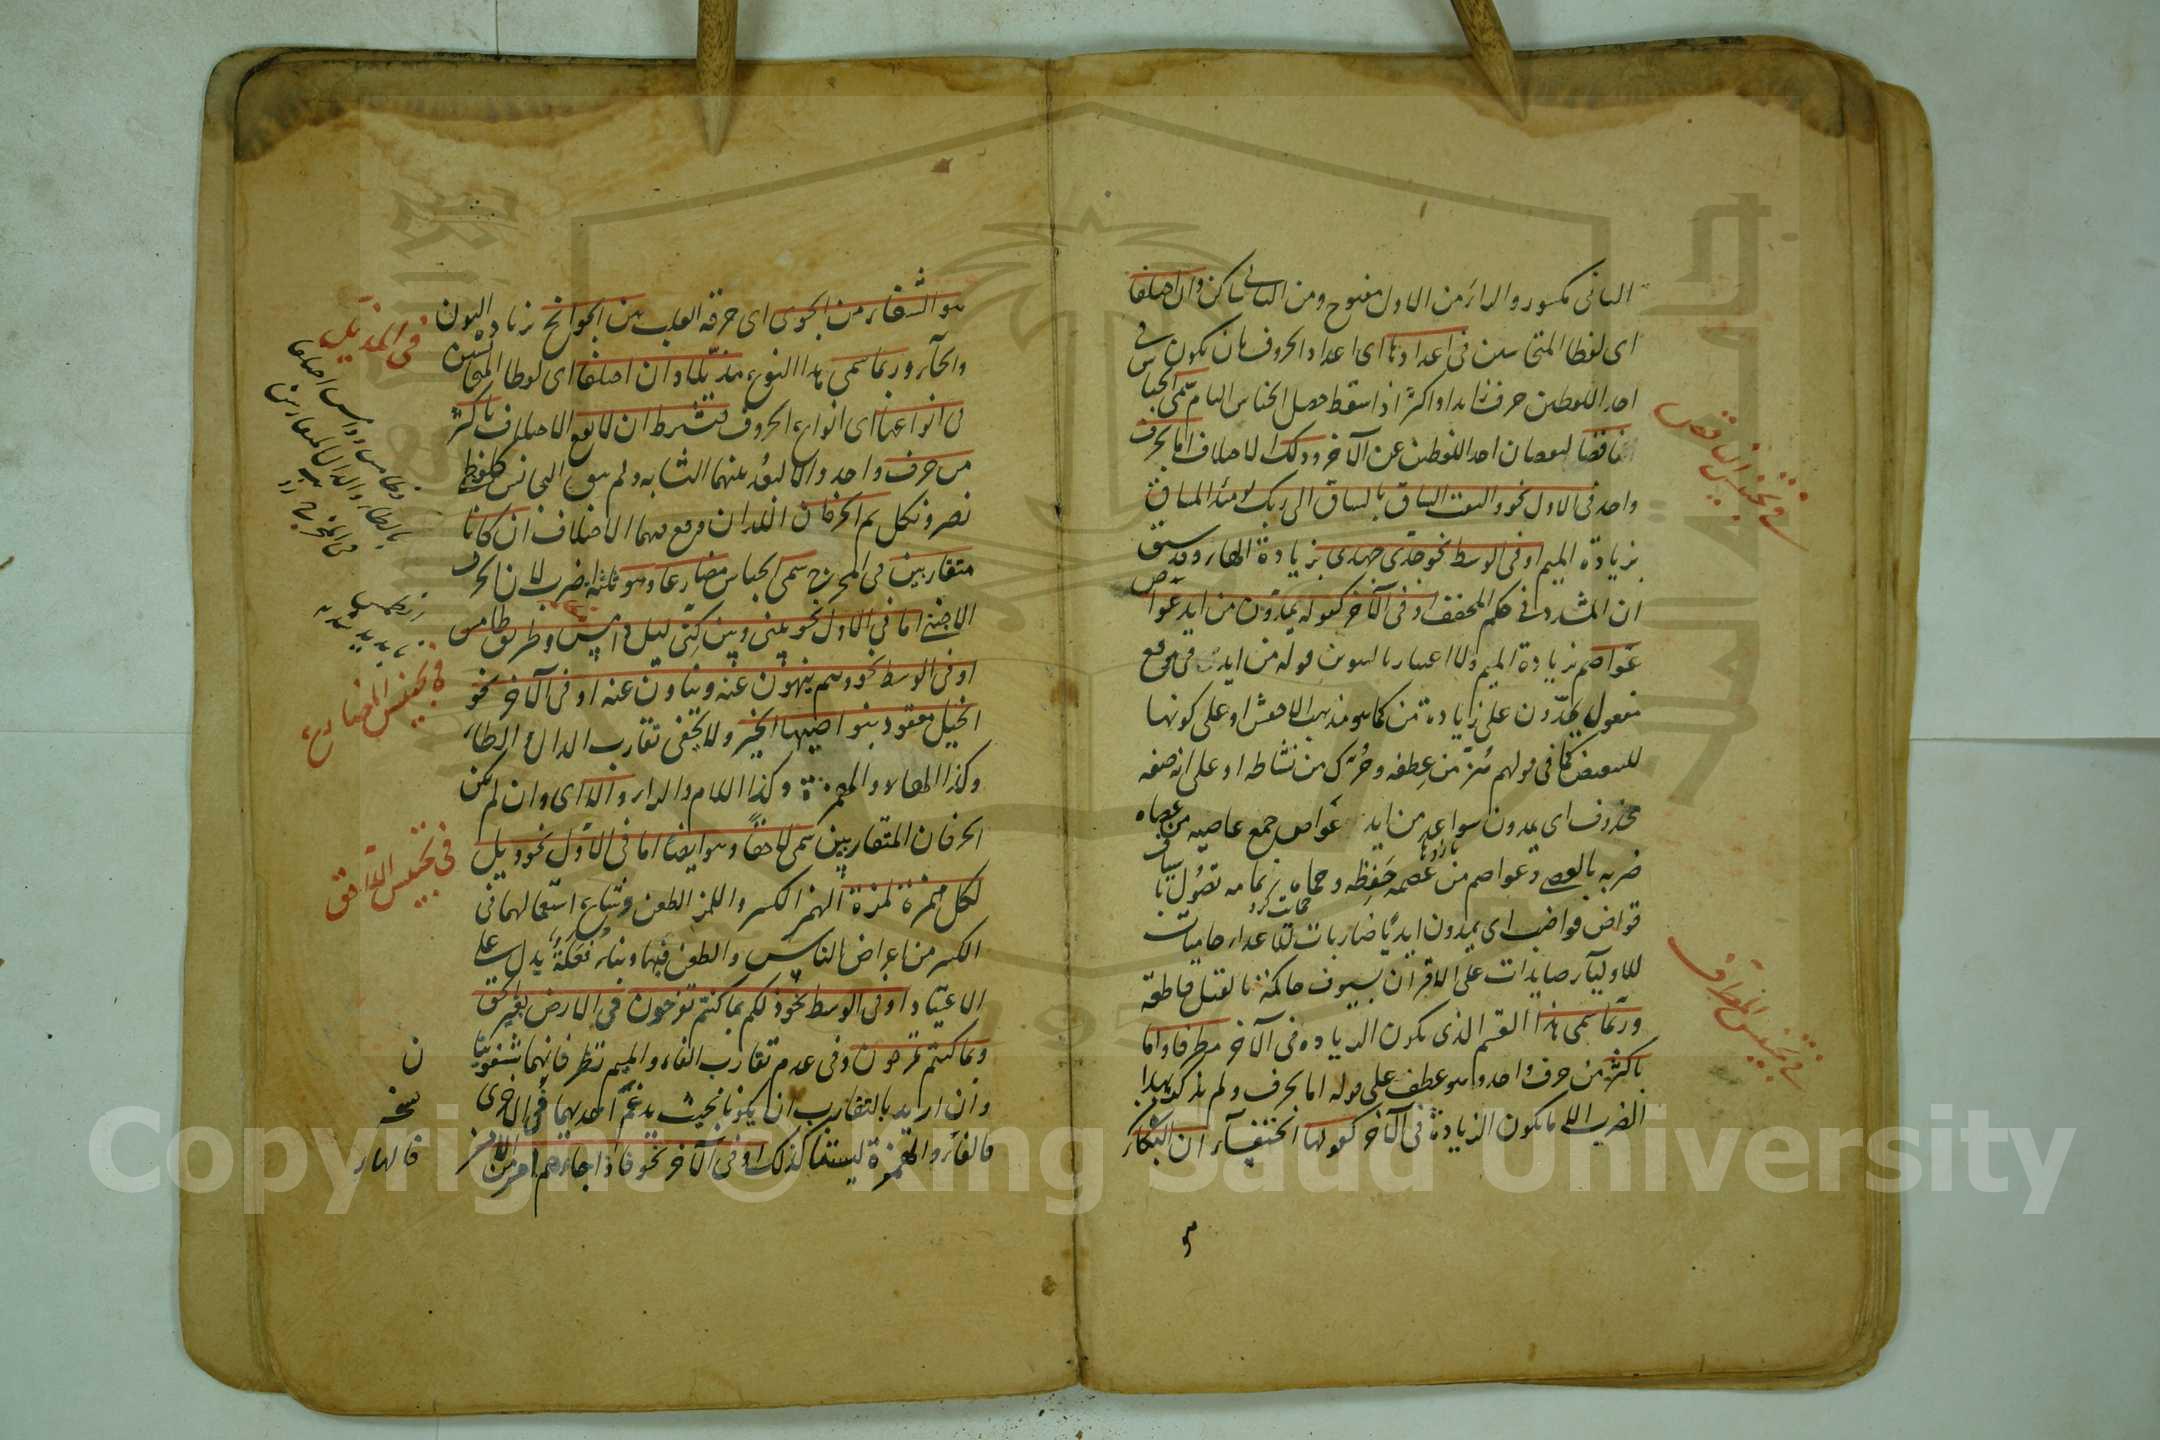 الثانى مكسور والراء من الاول مفتوح ومن الثانى ساكن وان اختلفا
اى لفظا المتجانسين فى اعدادها اى اعداد الحروف بان يكون فى
احد اللفظين حرف زايد او اكثر اذا سقط حصل الجناس التام سمى الجناس
ناقصا لنقصان احد اللفظين عن الآخر وذلك الاختلاف اما بحرف
واحد فى الاول نحو والتفت الساق بالساق الى ربك يومئذ المساق
بزيادة الميم او فى الوسط نحو جدى جهدى بزيادة الهاء وقد سبق
ان المشدد فى حكم المخفف او فى الآخر كقوله يمدون من ايد عواص
عواصم بزيادة الميم ولا اعتبار بالتنوين قوله من ايد فى موقع
مفعول يمدون على زيادة من كما هو مذهب الاخفش او على كونها
للتبعيض كما فى قولهم هز من عطفه وحرك من نشاطه او على انه صفة
محذوف اى يمدون سواعد من ايد عواص جمع عاصيه من عصاه
ضربه بالعصى وعواصم من عصمه حفظه وحماه بتمامه تصول باسياف
قواض قواضب اى يمدون ايديا ضاربات للاعداء حاميات
للاولياء صايدات على الاقران بسيوف حاكمة بالقتل قاطعة
وربما سمى هذا القسم الذى يكون الزيادة فى الآخر مطرفا واما
باكثر من حرف واحد وهو عطف على قوله اما بحرف ولم يذكر من هذا
الضرب الا ما يكون الزيادة فى الآخر كقولها اى الخنساء ان البكاء
فى تجنيس الناقص
فى تجنيس المطرف
هو الشفاء من الجوى اى حرقة القلب بين الجوانح بزيادة النون
والحاء وربما سمى هذا النوع مذيلا وان اختلفا اى لفظا المتجانسين
فى انواعها اى انواع الحروف فيشترط ان لا يقع الاختلاف باكثر
من حرف واحد والا لبعد بينهما التشابه ولم يبق التجانس كلفظى
نصر ونكل ثم الحرفان اللذان وقع فيهما الاختلاف ان كانا
متقاربين فى المخرج سمى الجناس مضارعا وهو ثلثة اضرب لان الحرف
الاجنبى اما فى الاول نحو بينى وبين كنى ليل دامس وطريق طامس
او فى الوسط نحو وهم ينهون عنه وينأون عنه او فى الآخر نحو
الخيل معقود بنواصيها الخير ولا يخفى تقارب الدال والطاء
وكذا الهاء والهمزة وكذا اللام والراء والا اى وان لم يكن
الحرفان المتقاربين سمى لاحقا وهو ايضا اما فى الاول نحو ويل
لكل همزة لمزة الهمز الكسر واللمز الطعن وشاع استعمالهما فى
الكسر من اعراض الناس والطعن فيها وبناء فعلة يدل على
الاعتياد او فى الوسط نحو ذلكم بما كنتم تفرحون فى الارض بغير الحق
وبما كنتم تمرحون وفى عدم تقارب الفاء والميم نظر فانهما شفويتان
وان اريد بالتقارب ان يكونا بحيث يدغم احديهما فى الاخرى
فالهاء والهمزة ليستا كذلك او فى الآخر نحو فاذا جاءهم امر من الامن
فى المذيل
فى تجنيس المضارع
فى تجنيس اللاحق
ن
نسخه
فالهاء
Copyright © King Saud University